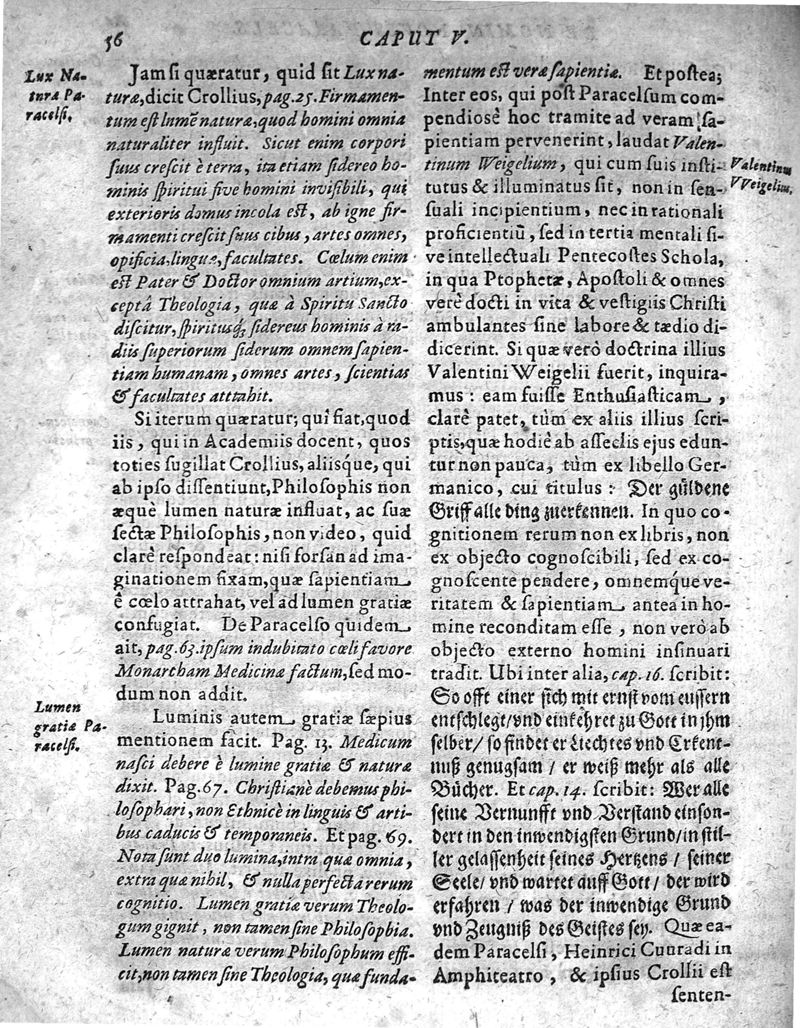 56
CAPUT V.
Lux Na-
turæ Pa-
racelsi.
Jam si quæratur, quid sit Lux na-
turæ, dicit Crollius, pag. 25. Firmamen-
tum est lumē naturæ, quod homini omnia
naturaliter influit. Sicut enim corpori
suus crescit è terra, ita etiam sidereo ho-
minis spiritui sive homini invisibili, qui
exterioris domus incola est, ab igne fir-
mamenti crescit suus cibus, artes omnes,
opificia, linguæ, facultates. Cœlum enim
est Pater & Doctor omnium artium, ex-
ceptâ Theologia, quæ à Spiritu Sancto
discitur, spiritusq; sidereus hominis à ra-
diis superiorum siderum omnem sapien-
tiam humanam, omnes artes, scientias
& facultates atttahit.
Si iterum quæratur; quî fiat, quod
iis, qui in Academiis docent, quos
toties sugillat Crollius, aliisque, qui
ab ipso dissentiunt, Philosophis non
æquè lumen naturæ influat, ac suæ
sectæ Philosophis, non video, quid
clarè respondeat: nisi forsan ad ima-
ginationem fixam, quæ sapientiam
è cœlo attrahat, vel ad lumen gratiæ
confugiat. De Paracelso quidem
ait, pag. 63. ipsum indubitato cœli favore
Monartham Medicinæ factum, sed mo-
dum non addit.
Lumen
gratiæ Pa-
racelsi.
Luminis autem gratiæ sæpius
mentionem facit. Pag. 13. Medicum
nasci debere è lumine gratiæ & naturæ
dixit. Pag. 67. Christianè debemus phi-
losophari, non Ethnicè in linguis & arti-
bus caducis & temporaneis. Et pag. 69.
Nota sunt duo lumina, intra quæ omnia,
extra quæ nihil, & nulla perfecta rerum
cognitio. Lumen gratiæ verum Theolo-
gum gignit, non tamen sine Philosophia.
Lumen naturæ verum Philosophum effi-
cit, non tamen sine Theologia, quæ funda-
mentum est veræ sapientiæ. Et postea;
Inter eos, qui post Paracelsum com-
pendiosè hoc tramite ad veram sa-
pientiam pervenerint, laudat Valen-
tinum Weigelium, qui cum suis insti-
tutus & illuminatus sit, non in sen-
suali incipientium, nec in rationali
proficientiū, sed in tertia mentali si-
ve intellectuali Pentecostes Schola,
in qua Ptophetæ, Apostoli & omnes
verè docti in vita & vestigiis Christi
ambulantes sine labore & tædio di-
dicerint. Si quæ verò doctrina illius
Valentini Weigelii fuerit, inquira-
mus: eam fuisse Enthusiasticam,
clarè patet, tùm ex aliis illius scri-
ptis, quæ hodiè ab asseclis ejus edun-
tur non pauca, tùm ex libello Ger-
manico, cui titulus: Der güldene
Griff alle ding zuerkennen. In quo co-
gnitionem rerum non ex libris, non
ex objecto cognoscibili, sed ex co-
gnoscente pendere, omnemque ve-
ritatem & sapientiam antea in ho-
mine reconditam esse, non verò ab
objecto externo homini insinuari
tradit. Ubi inter alia, cap. 16. scribit:
So offt einer sich mit ernst vom eussern
entschlegt/ vnd einkehret zu Gott in jhm
selber/ so findet er Liechtes vnd Erkent-
nuß genugsam/ er weiß mehr als alle
Bücher. Et cap. 14. scribit: Wer alle
seine Vernunfft vnd Verstand einson-
dert in den inwendigsten Grund/ in stil-
ler gelassenheit seines Hertzens/ seiner
Seele/ vnd wartet auff Gott/ der wird
erfahren/ was der inwendige Grund
vnd Zeugniß des Geistes sey. Quæ ea-
dem Paracelsi, Heinrici Cunradi in
Amphiteatro, & ipsius Crollii est
senten-
Valentinu
VVeigelius,